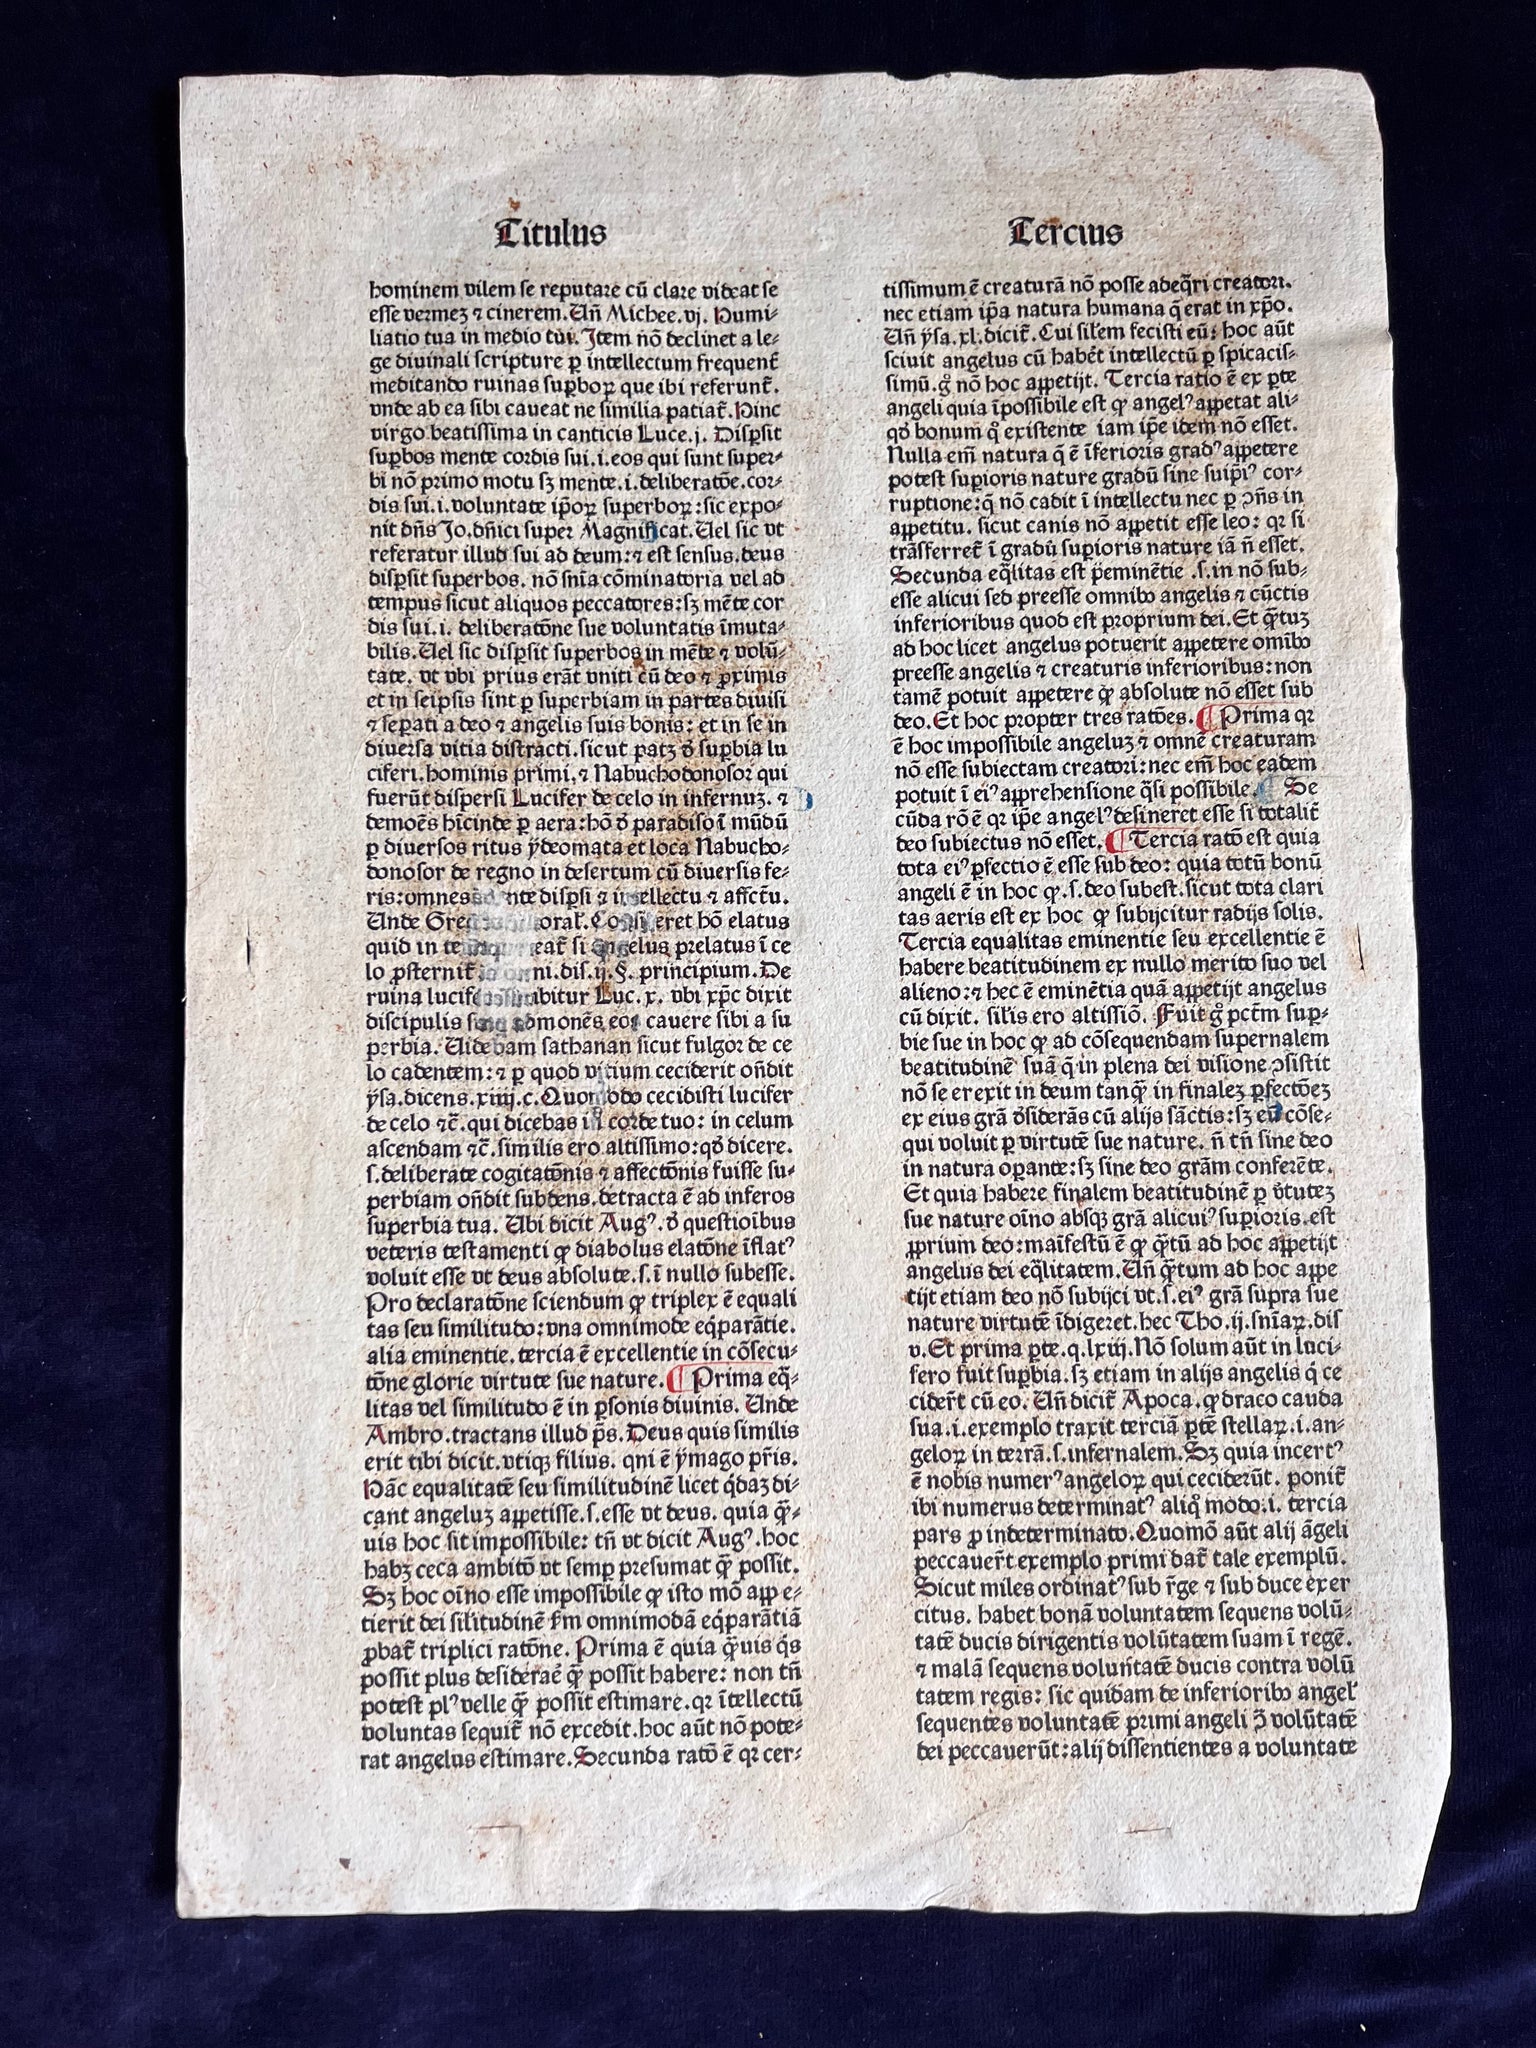 Titulus
hominem vilem se reputare cū clare videat se
esse vermeꝫ ⁊ cinerem. Uñ Michee. vj. Humi-
liatio tua in medio tui. Item nō declinet a le-
ge diuinali scripture ꝑ intellectum frequent̄
meditando ruinas suꝑboꝝ que ibi referunt̄.
vnde ab ea sibi caueat ne similia patiat̄. Hinc
virgo beatissima in canticis Luce. j. Disꝑsit
suꝑbos mente cordis sui. i. eos qui sunt super-
bi nō primo motu sꝫ mente. i. deliberatōe. cor-
dis sui. i. voluntate ip̄oꝝ superboꝝ: sic expo-
nit dn̄s Jo. dn̄ici super Magnificat. Uel sic vt
referatur illud sui ad deum: ⁊ est sensus. deus
disꝑsit superbos. nō sn̄ia cōminatoria vel ad
tempus sicut aliquos peccatores: sꝫ mēte cor
dis sui. i. deliberatōne sue voluntatis īmuta-
bilis. Uel sic disꝑsit superbos in mēte ⁊ volū-
tate. vt vbi prius erāt vniti cū deo ⁊ ꝓximis
et in seipsis sint ꝑ superbiam in partes diuisi
⁊ seꝑati a deo ⁊ angelis suis bonis: et in se in
diuersa vitia distracti. sicut patꝫ ꝺ̄ suꝑbia lu
ciferi. hominis primi, ⁊ Nabuchodonosor qui
fuerūt dispersi Lucifer de celo in infernuꝫ. ⁊
demoēs hīcinde ꝑ aera: hō ꝺ̄ paradiso ī mūdū
ꝑ diuersos ritus ẏdeomata et loca Nabucho-
donosor de regno in desertum cū diuersis fe-
ris: omnes mente disꝑsi ⁊ intellectu ⁊ affectu.
Unde oral̄. hō elatus
quid in si angelus prelatus ī ce
lo ꝓsternit̄ dis. ij. §. principium. De
ruina lucif ibitur Luc. x. vbi xp̄c dixit
discipulis admonēs eos cauere sibi a su
perbia. Uidebam sathanan sicut fulgor de ce
lo cadentem: ⁊ ꝑ quod vitium ceciderit on̄dit
ẏsa. dicens. xiiij. c. Quomodo cecidisti lucifer
de celo ⁊c̄. qui dicebas in corde tuo: in celum
ascendam ⁊c̄. similis ero altissimo: qꝺ̄ dicere.
s. deliberate cogitatōnis ⁊ affectōnis fuisse su-
perbiam on̄dit subdens. detracta ē ad inferos
superbia tua. Ubi dicit Augꝰ. ꝺ̄ questioībus
veteris testamenti ꝙ diabolus elatōne īflatꝰ
voluit esse vt deus absolute. s. ī nullo subesse.
Pro declaratōne sciendum ꝙ triplex ē equali
tas seu similitudo: vna omnimode eq̄parātie.
alia eminentie. tercia ē excellentie in cōsecu-
tōne glorie virtute sue nature. ¶ Prima eq̄-
litas vel similitudo ē in ꝑsonis diuinis. Unde
Ambro. tractans illud p̄s. Deus quis similis
erit tibi dicit. vtiqꝫ filius. qni ē ẏmago pr̄is.
Hāc equalitatē seu similitudinē licet q̇daꝫ di-
cant angeluꝫ aꝑpetisse. s. esse vt deus. quia q̄ꝫ-
uis hoc sit impossibile: tn̄ vt dicit Augꝰ. hoc
habꝫ ceca ambitō vt semꝑ presumat q̄ꝫ possit.
Sꝫ hoc oīno esse impossibile ꝙ isto mō aꝑpe-
tierit dei sil̄itudinē ẜm omnimodā eq̄parātiā
ꝓbat̄ triplici ratōne. Prima ē quia q̄ꝫuis q̇s
possit plus desiderae̓ q̄ꝫ possit habere: non tn̄
potest plꝰ velle q̄ꝫ possit estimare. qꝛ ītellectū
voluntas sequit̄ nō excedit. hoc aūt nō pote-
rat angelus estimare. Secunda ratō ē qꝛ cer-
Tercius
tissimum ē creaturā nō posse adeq̄ri creatori.
nec etiam ip̄a natura humana q̄ erat in xp̄o.
Uñ ẏsa. xl. dicit̄. Cui sil̄em fecisti eū: hoc aūt
sciuit angelus cū habēt intellectū ꝑ spicacis-
simū. gͦ nō hoc aꝑpetijt. Tercia ratio ē ex ꝑte
angeli quia īpossibile est ꝙ angelꝰ aꝑpetat ali-
qꝺ̄ bonum qͦ existente iam ip̄e idem nō esset.
Nulla em̄ natura q̄ ē īferioris gradꝰ aꝑpetere
potest suꝑioris nature gradū sine suip̄iꝰ cor-
ruptione: q̄ nō cadit ī intellectu nec ꝑ ↄn̄s in
aꝑpetitu. sicut canis nō aꝑpetit esse leo: qꝛ si
trāsferret̄ ī gradū suꝑioris nature iā n̄ esset.
Secunda eq̄litas est p̄eminētie .s. in nō sub-
esse alicui sed preesse omnibꝰ angelis ⁊ cūctis
inferioribus quod est proprium dei. Et q̄ꝫtuꝫ
ad hoc licet angelus potuerit aꝑpetere omībꝰ
preesse angelis ⁊ creaturis inferioribus: non
tamē potuit aꝑpetere ꝙ absolute nō esset sub
deo. Et hoc propter tres ratōes. ¶ Prima qꝛ
ē hoc impossibile angeluꝫ ⁊ omnē creaturam
nō esse subiectam creatori: nec em̄ hoc eadem
potuit ī eiꝰ aꝑprehensione q̄si possibile. ¶ Se
cūda rō ē qꝛ ip̄e angelꝰ desineret esse si totalit̄
deo subiectus nō esset. ¶ Tercia ratō est quia
tota eiꝰ ꝑfectio ē esse sub deo: quia totū bonū
angeli ē in hoc ꝙ .s. deo subest. sicut tota clari
tas aeris est ex hoc ꝙ subijcitur radijs solis.
Tercia equalitas eminentie seu excellentie ē
habere beatitudinem ex nullo merito suo vel
alieno: ⁊ hec ē eminētia quā aꝑpetijt angelus
cū dixit. sil̄is ero altissiō. Fuit gͦ pct̄m suꝑ-
bie sue in hoc ꝙ ad cōsequendam supernalem
beatitudinē suā q̄ in plena dei visione ↄsistit
nō se erexit in deum tanqꝫ̄ in finaleꝫ ꝑfectōeꝫ
ex eius grā ꝺ̄siderās cū alijs sāctis: sꝫ eā cōse-
qui voluit ꝑ virtutē sue nature. n̄ tn̄ sine deo
in natura oꝑante: sꝫ sine deo grām conferēte.
Et quia habere finalem beatitudinē ꝑ v̓tuteꝫ
sue nature oīno absqꝫ grā alicuiꝰ suꝑioris. est
ꝓprium deo: maīfestū ē ꝙ q̄ꝫtū ad hoc aꝑpetijt
angelus dei eq̄litatem. Uñ q̄ꝫtum ad hoc aꝑpe
tijt etiam deo nō subijci vt. s. eiꝰ grā supra sue
nature virtutē īdigeret. hec Tho. ij. sn̄iaꝝ. dis
v. Et prima ꝑte. q. lxiij. Nō solum aūt in luci-
fero fuit suꝑbia. sꝫ etiam in alijs angelis q̇ ce
cider̄t cū eo. Uñ dicit̄ Apoca. ꝙ draco cauda
sua. i. exemplo traxit terciā ꝑtē stellaꝝ. i. an-
geloꝝ in terrā. s. infernalem. Sꝫ quia incertꝰ
ē nobis numerꝰ angeloꝝ qui ceciderūt. ponit̄
ibi numerus determinatꝰ aliqͦ modo. i. tercia
pars ꝓ indeterminato. Quomō aūt alij āgeli
peccauer̄t exemplo primi dat̄ tale exemplū.
Sicut miles ordinatꝰ sub r̄ge ⁊ sub duce exer
citus. habet bonā voluntatem sequens volū-
tatē ducis dirigentis volūtatem suam ī regē.
⁊ malā sequens voluntatē ducis contra volū
tatem regis: sic quidam de inferioribꝰ angel̄
sequentes voluntatē primi angeli ↄ̄ volūtatē
dei peccauerūt: alij dissentientes a voluntate